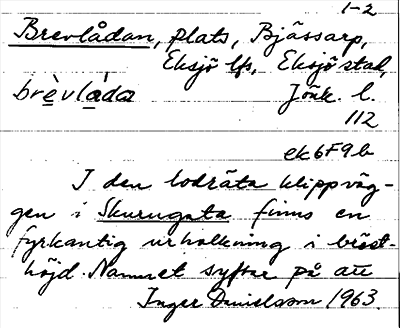 1-2
Brevlådan, plats, Bjässarp,
Eksjö lfs, Eksjö stad,
brèvlàda Jönk. l.
112
ek 6F9b
I den lodräta klippväg-
gen i Skurugata finns en
fyrkantig urholkning i bröst-
höjd. Namnet syftar på att
Inger Danielsson 1963.